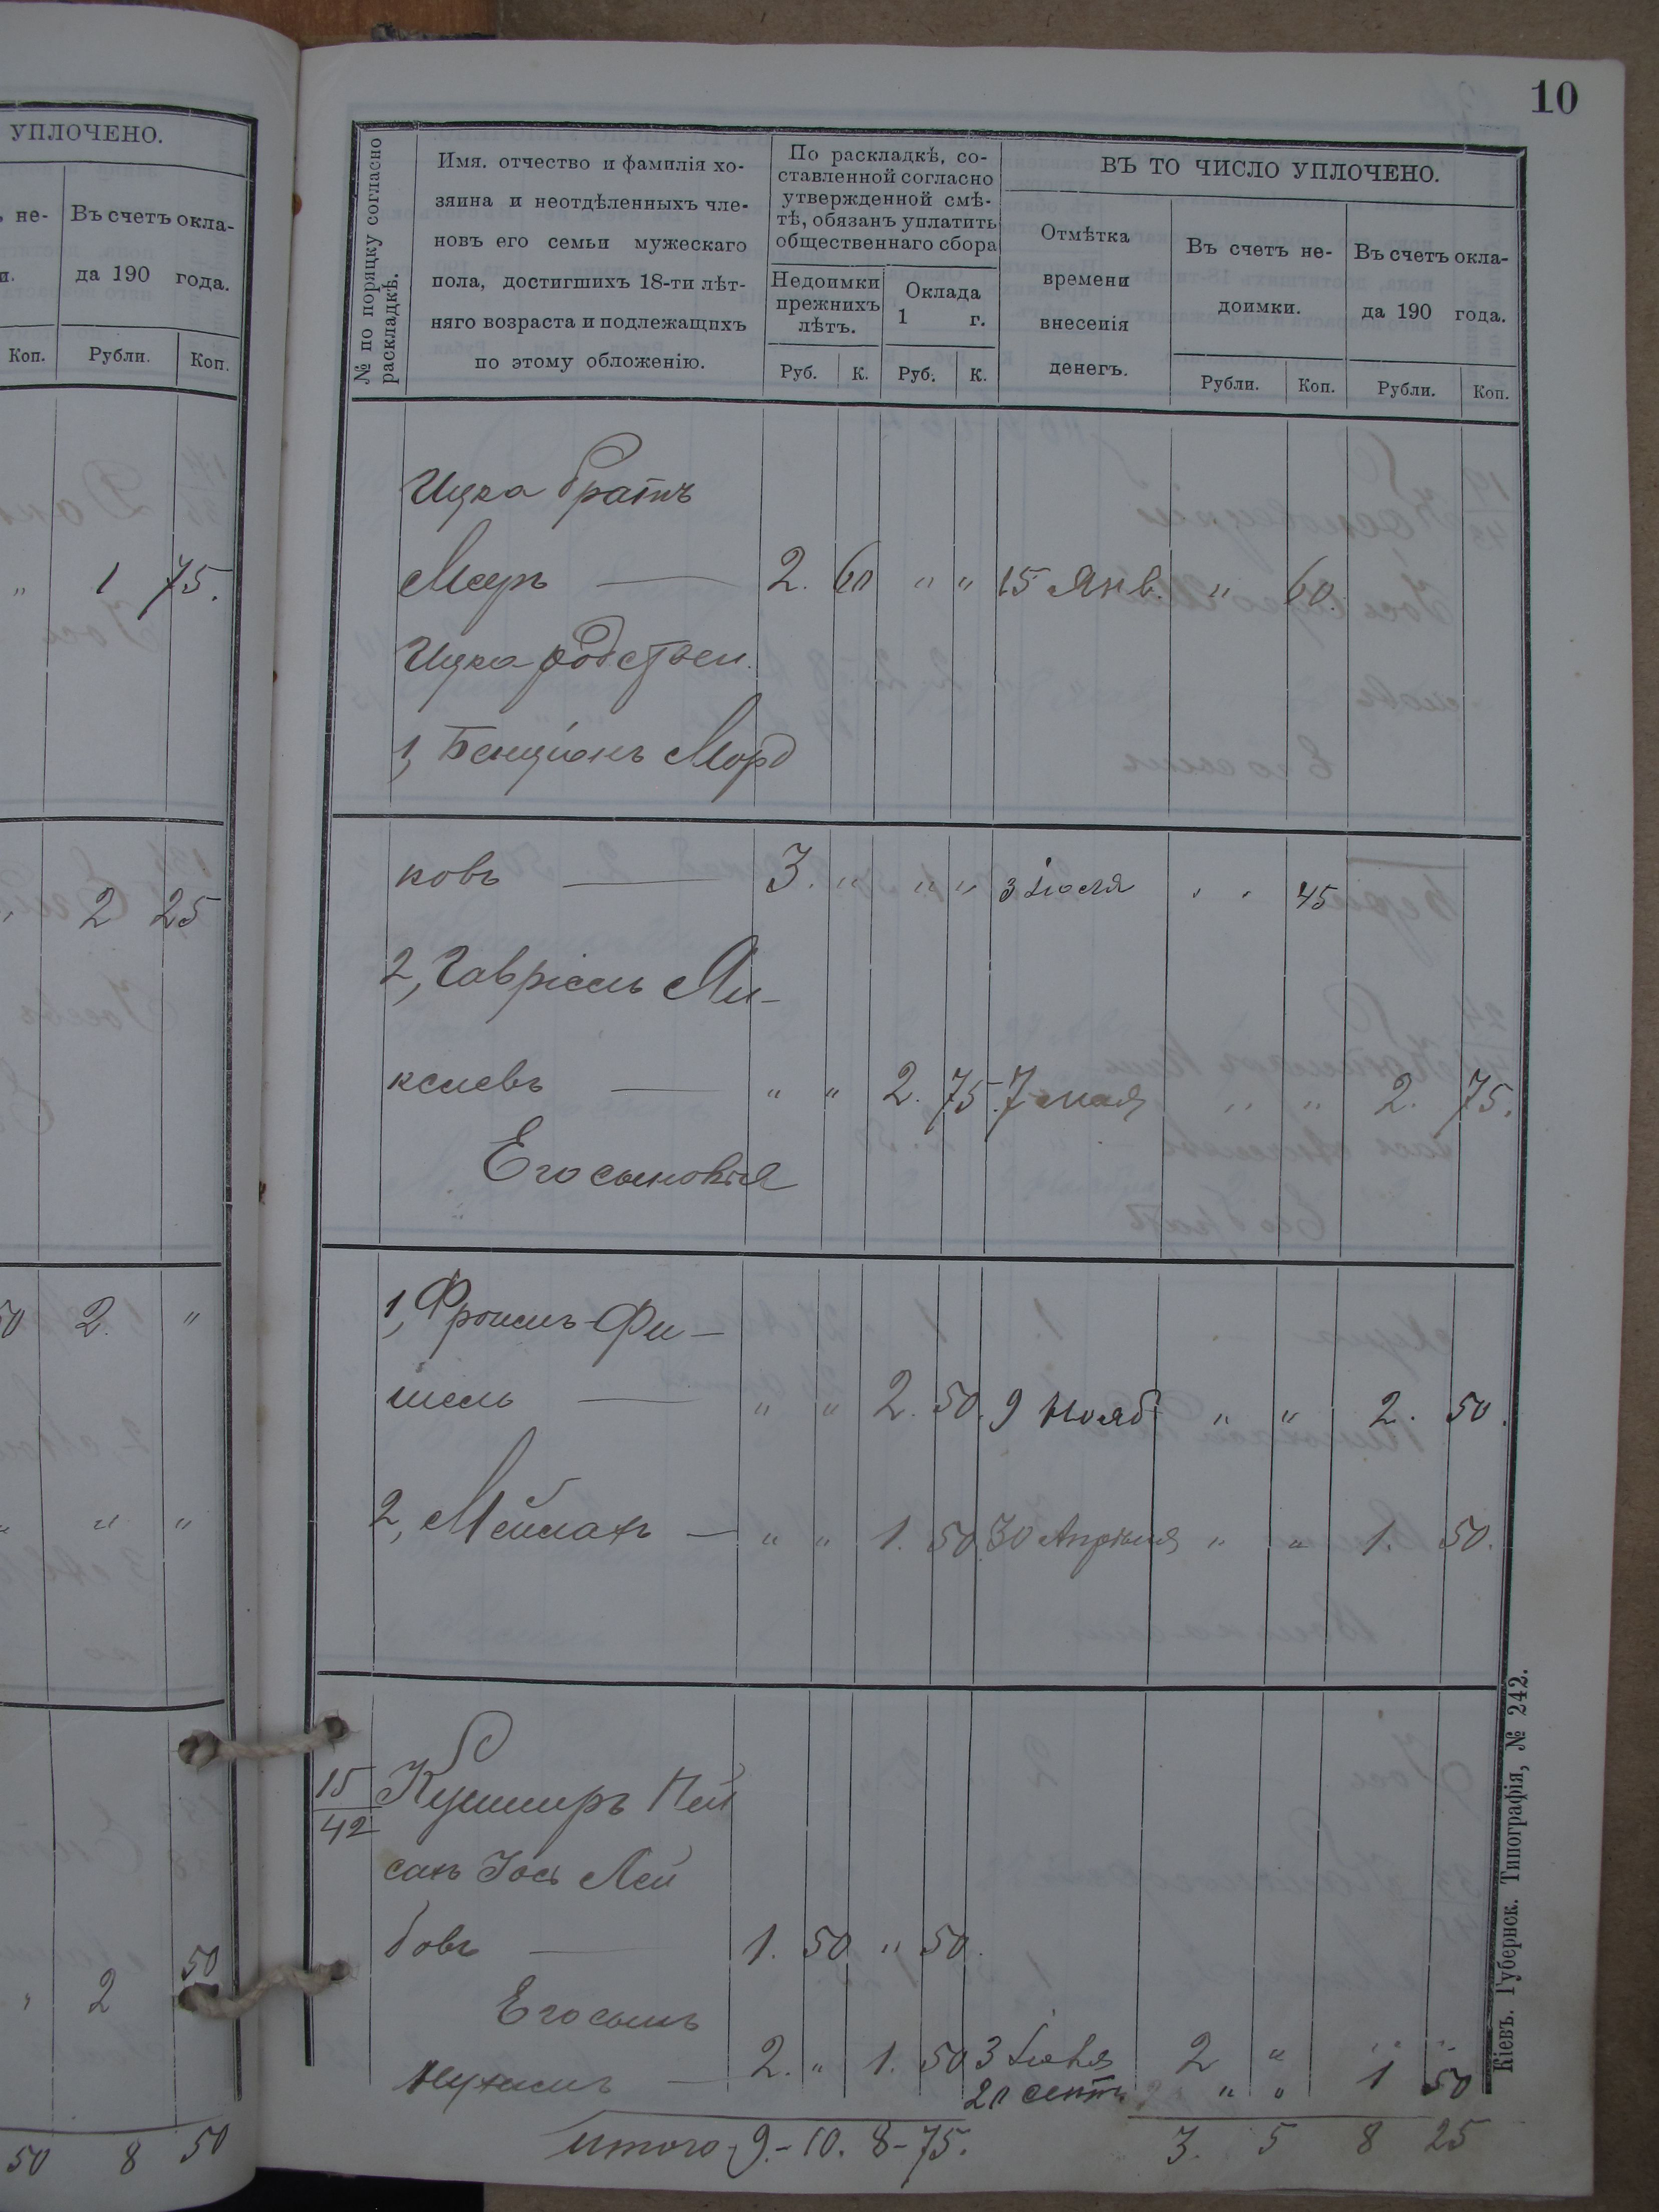 УПЛОЧЕНО.
Въ счетъ окла-
да 190 года.
Коп. Рубли. Коп.
" 1 75.
2 25
50 2. "
" " "
" 2 50
50 8 50
10
№ по порядку согласно раскладкѣ.
Имя. отчество и фамилія хо-
зяина и неотдѣленныхъ чле-
новъ его семьи мужескаго
пола, достигшихъ 18-ти лѣт-
няго возраста и подлежащихъ
по этому обложенію.
По раскладкѣ, со-
ставленной согласно
утвержденной смѣ-
тѣ, обязанъ уплатить
общественнаго сбора
Недоимки
прежнихъ
лѣтъ.
Оклада
1 г.
Руб. К. Руб. К.
ВЪ ТО ЧИСЛО УПЛОЧЕНО.
Отмѣтка
времени
внесенія
денегъ.
Въ счетъ не-
доимки.
Рубли. Коп.
Въ счетъ окла-
да 190 года.
Рубли. Коп.
Ицка братъ
Меер — 2. 60 " " 15 Янв. " 60.
Ицка родствен.
1, Бенціонъ Морд
ковъ — 3. " " " 3 Іюля " " 45
2, Гавріель Ли-
" " 2. 75. 7 мая " " 2. 75.
Его сыновья
1, Фроимъ-Фи-
шель — " " 2. 50. 9 Нояб " " 2. 50.
2, Мейлах — " " 1. 50. 30 Апрѣля " " 1. 50.
15
42
Кушниръ Ней
сахъ Іось Лей
бовъ — 1. 50 " 50.
Его сынъ
Нухимъ — 2. " 1. 50 3 Іюня 2 " " "
20 сент. " " 1 50
итого 9.-10. 8-75. 3. 5 8 25
Кіевъ. Губернск. Типографія, № 242.